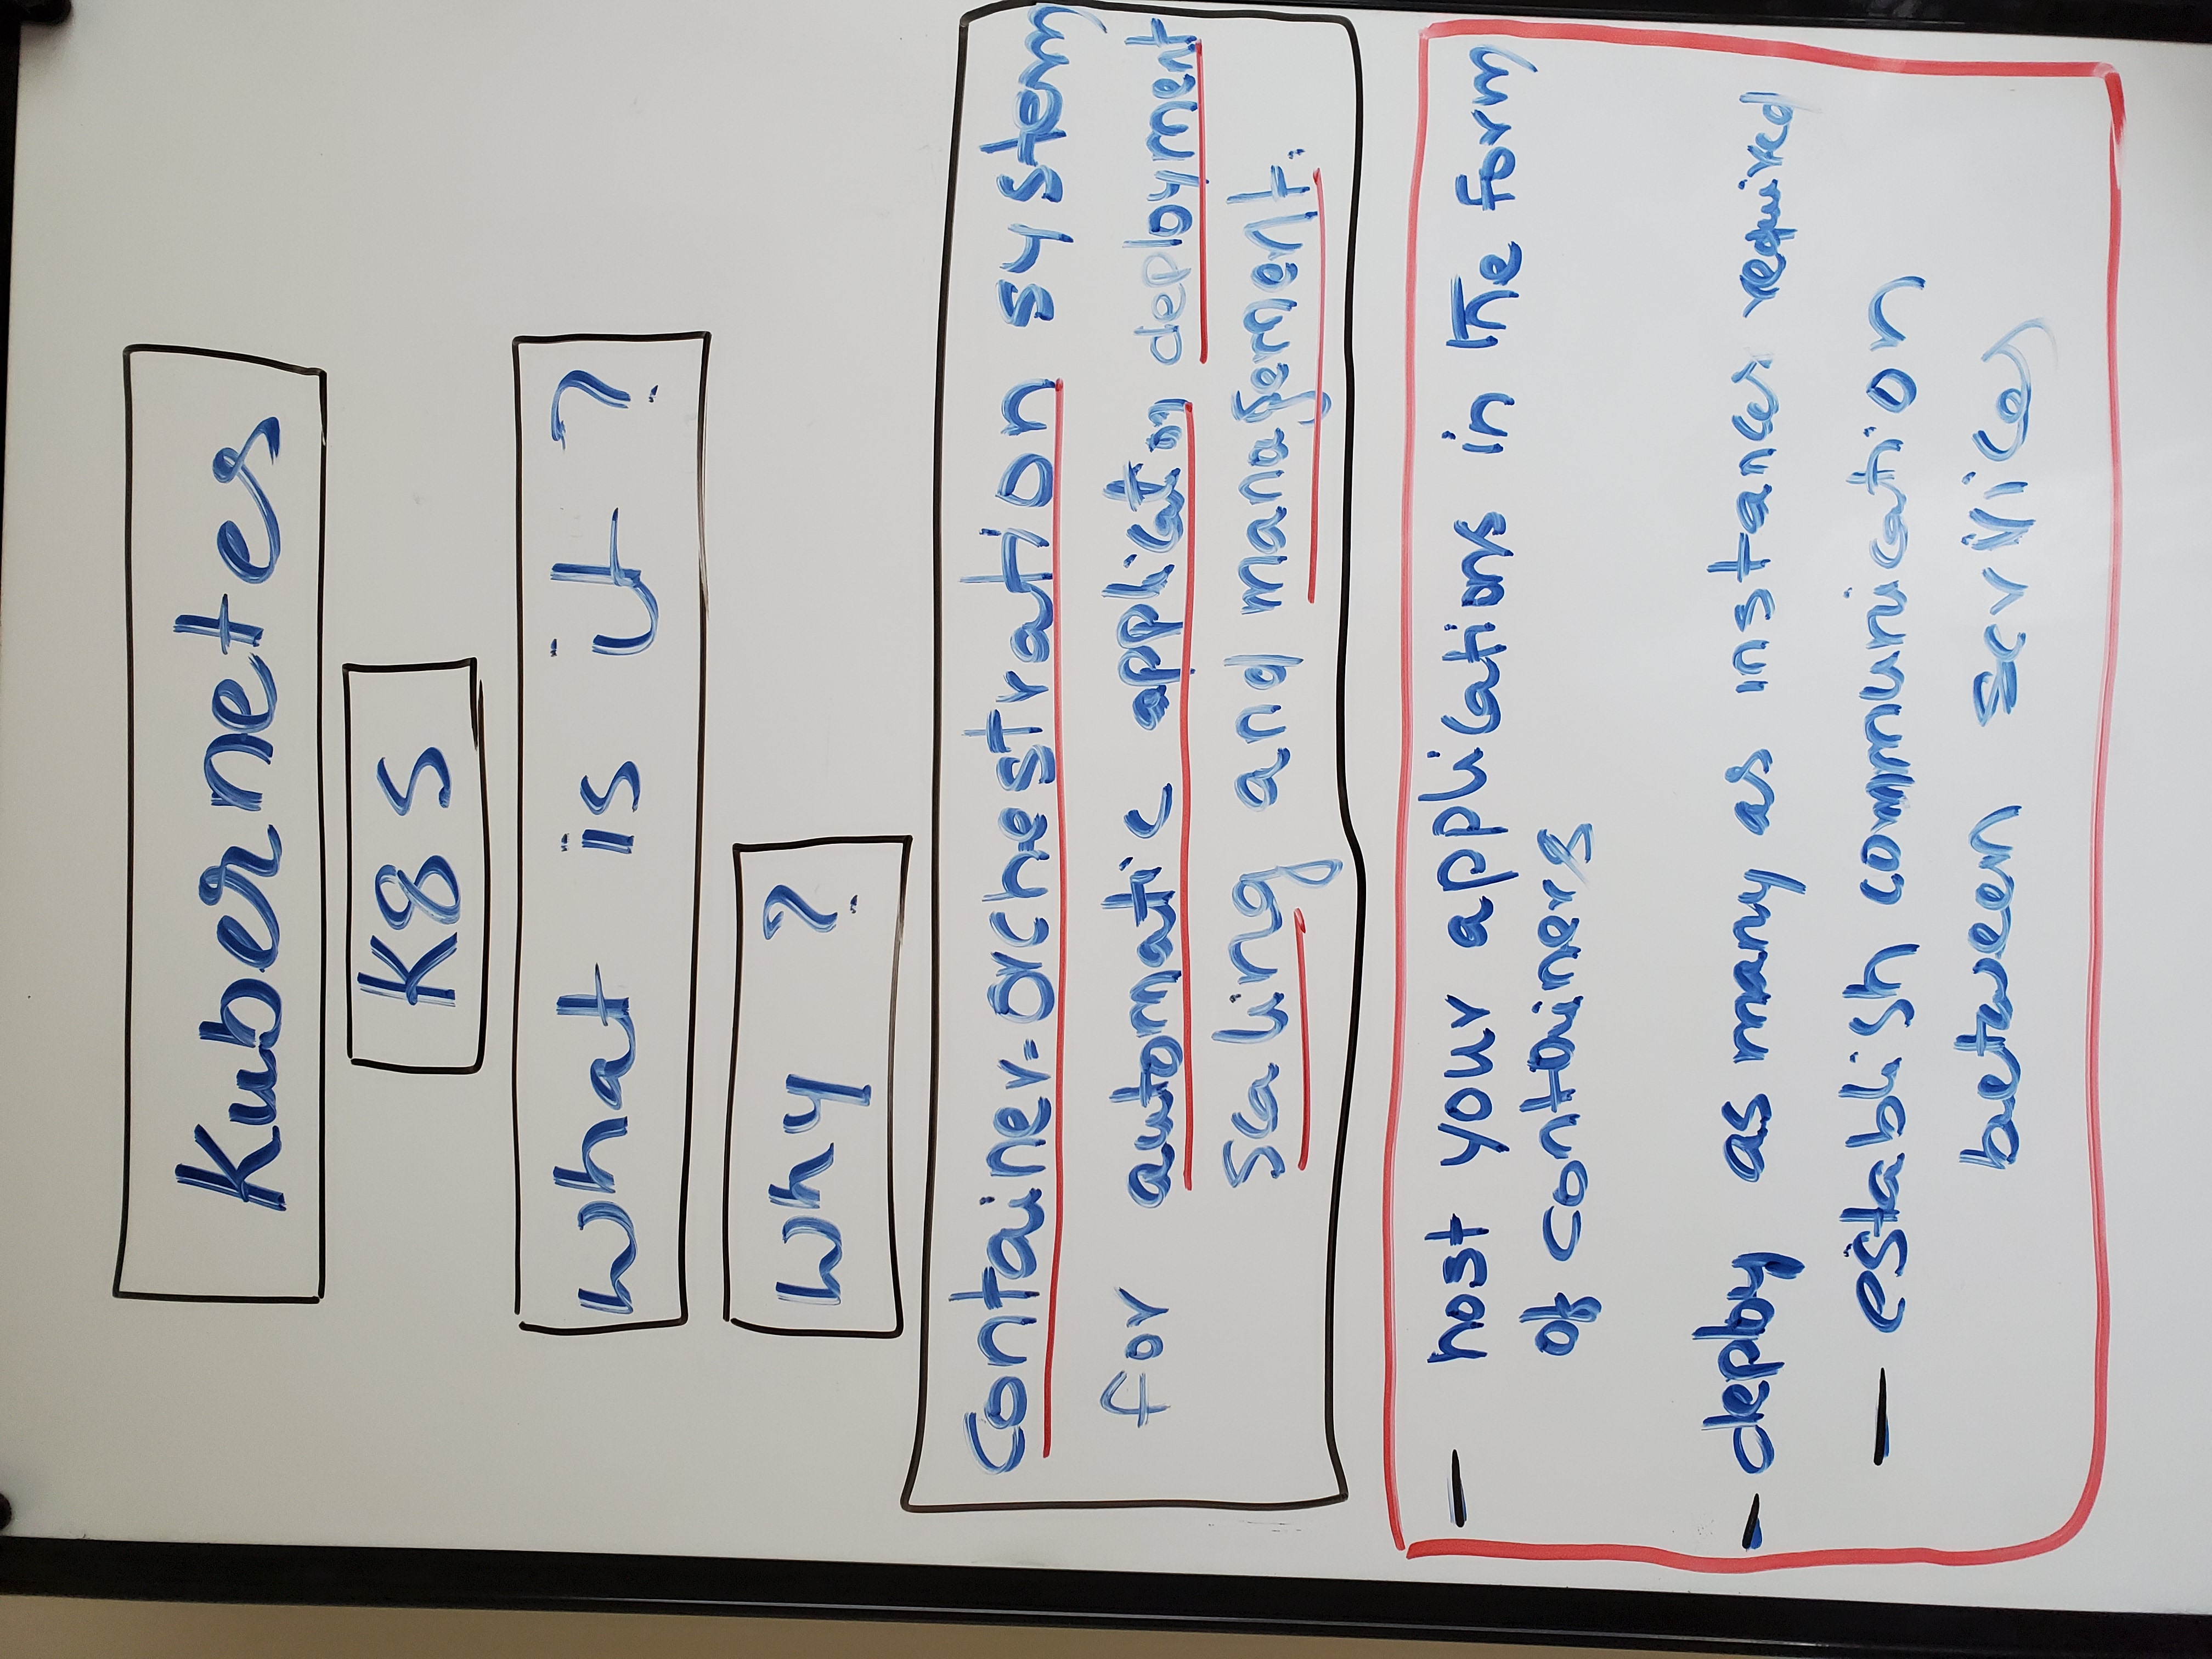 Kubernetes
K8s
What is it ?
Why ?
Container-orchestration system
for automatic application deployment
scaling and management.
- host your applications in the form
of containers
- deploy as many as instances required
- establish communication
between services